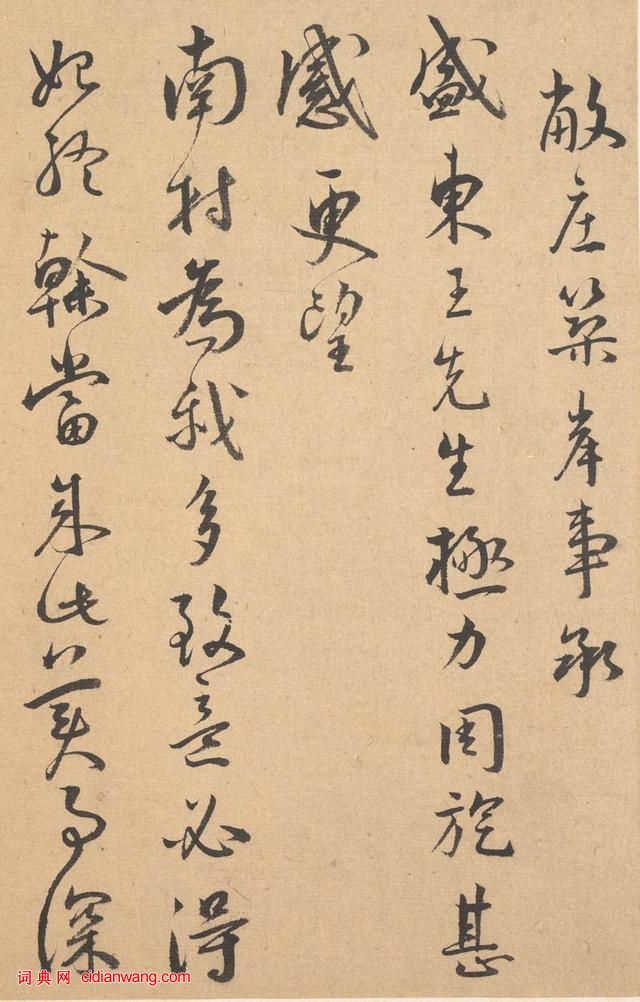 敝庄築岸事承
盛東王先生極力周旋甚
感更望
南村為我多致意必得
始終幹當成此美事深
词典网 cidianwang.com